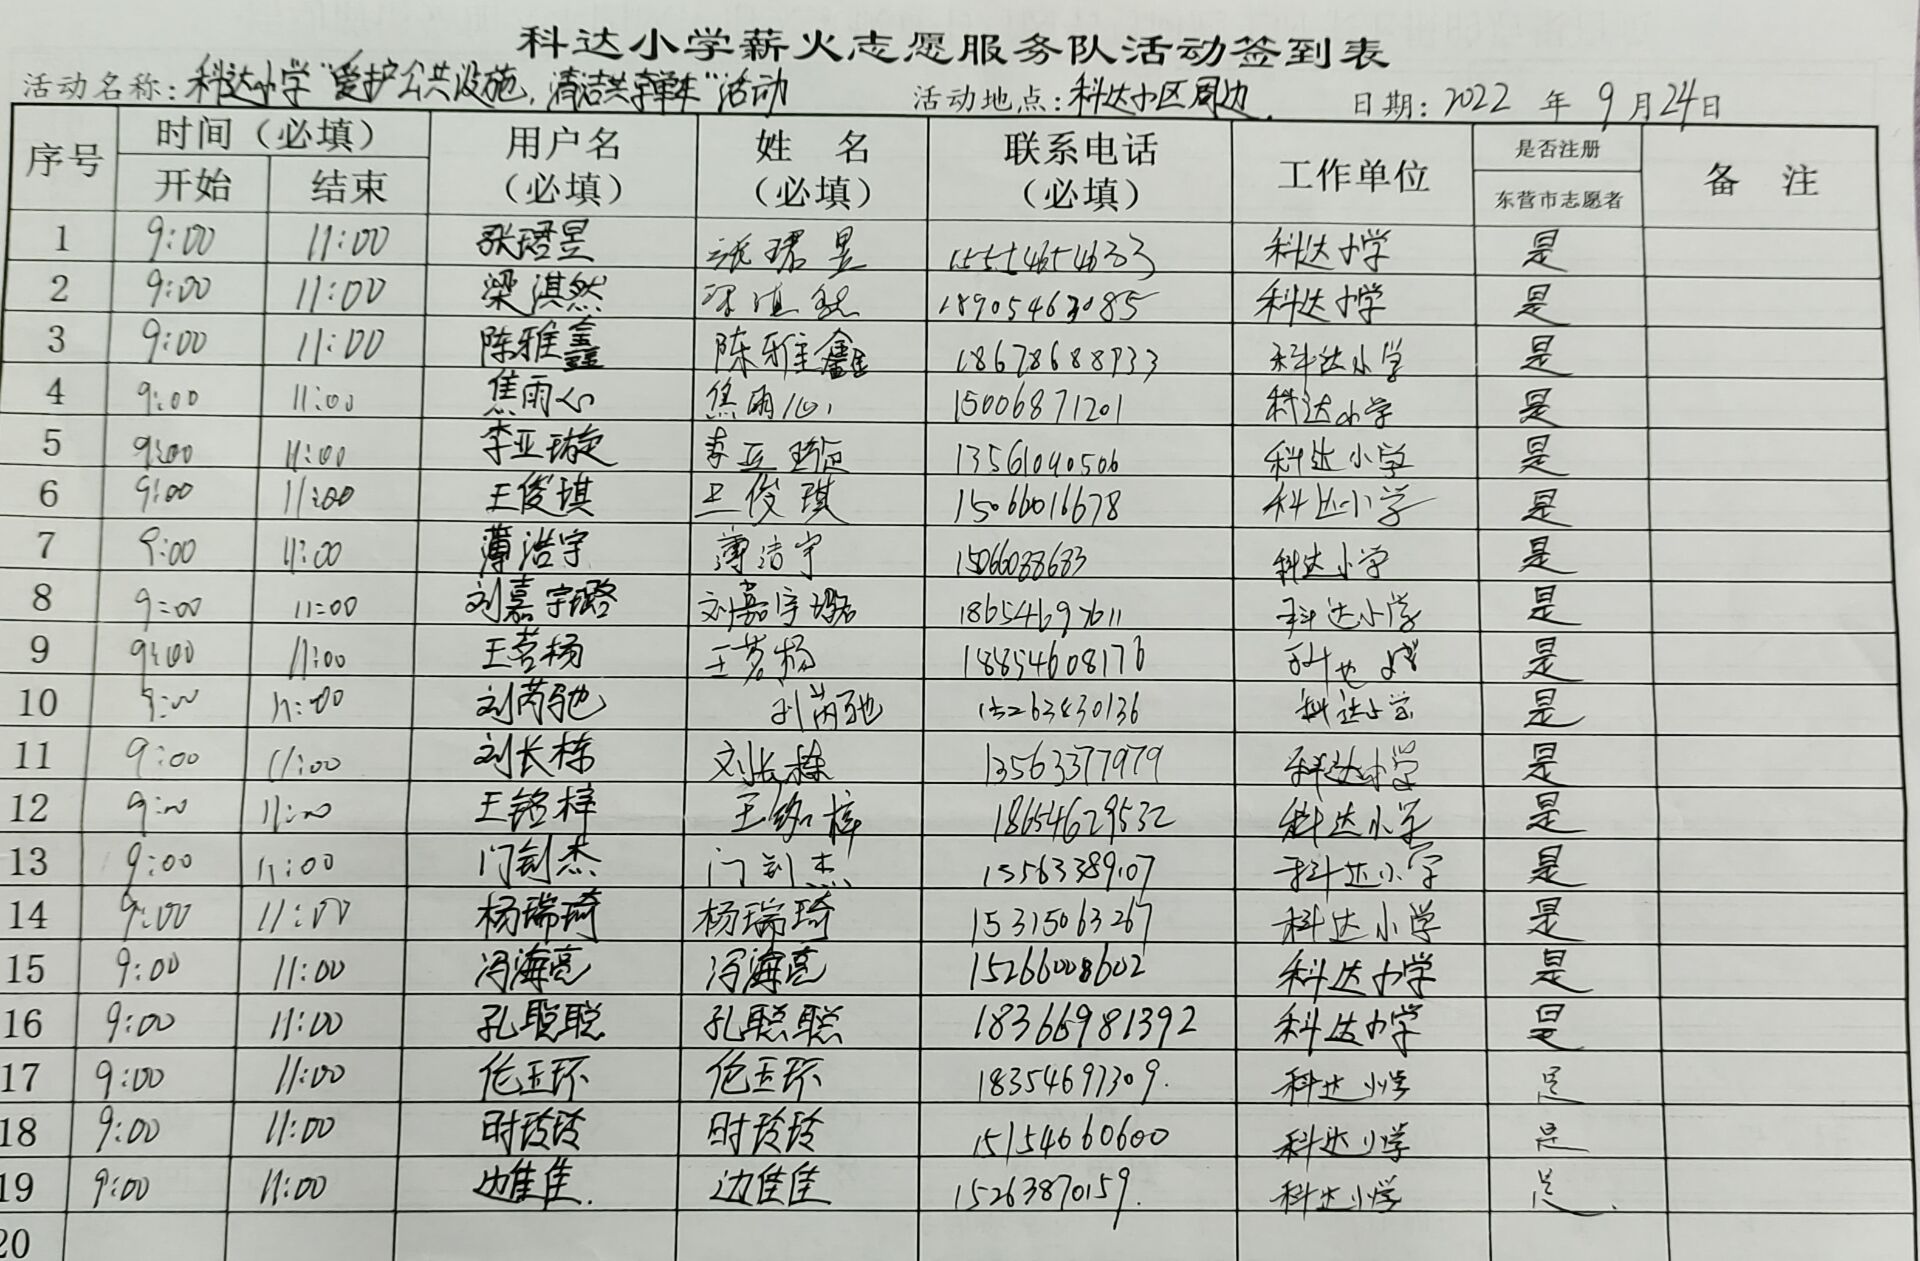 科达小学薪火志愿服务队活动签到表
活动名称:科达小学“爱护公共设施,清洁共享单车”活动 活动地点:科达小区周边. 日期:2022年9月24日
序号 时间(必填) 用户名(必填) 姓 名(必填) 联系电话(必填) 工作单位 是否注册 备 注
开始 结束 东营市志愿者
1 9:00 11:00 张珺昱 张珺昱 15554654633 科达小学 是
2 9:00 11:00 梁淇然 梁淇然 18905463085 科达小学 是
3 9:00 11:00 陈雅鑫 陈雅鑫 18678688933 科达小学 是
4 9:00 11:00 焦雨心 焦雨心 15006871201 科达小学 是
5 9:00 11:00 李亚璇 李亚璇 13561040506 科达小学 是
6 9:00 11:00 王俊琪 王俊琪 15066016678 科达小学 是
7 9:00 11:00 薄浩宇 薄浩宇 科达小学 是
8 9:00 11:00 刘嘉宇璐 刘嘉宇璐 18654697611 科达小学 是
9 9:00 11:00 王茗杨 王茗杨 18854608176 科达小学 是
10 9:00 11:00 刘芮驰 刘芮驰 15263830136 科达小学 是
11 9:00 11:00 刘长栋 刘长栋 13563377979 科达小学 是
12 9:00 11:00 王铭梓 王铭梓 18654629532 科达小学 是
13 9:00 11:00 门钊杰 门钊杰 15563389107 科达小学 是
14 9:00 11:00 杨瑞琦 杨瑞琦 15315063267 科达小学 是
15 9:00 11:00 冯海亮 冯海亮 15266008602 科达小学 是
16 9:00 11:00 孔聪聪 孔聪聪 18366981392 科达小学 是
17 9:00 11:00 伦玉环 伦玉环 18354697309. 科达小学 是
18 9:00 11:00 时玲玲 时玲玲 15154660600 科达小学 是
19 9:00 11:00 边佳佳. 边佳佳 15263870159. 科达小学 是.
20